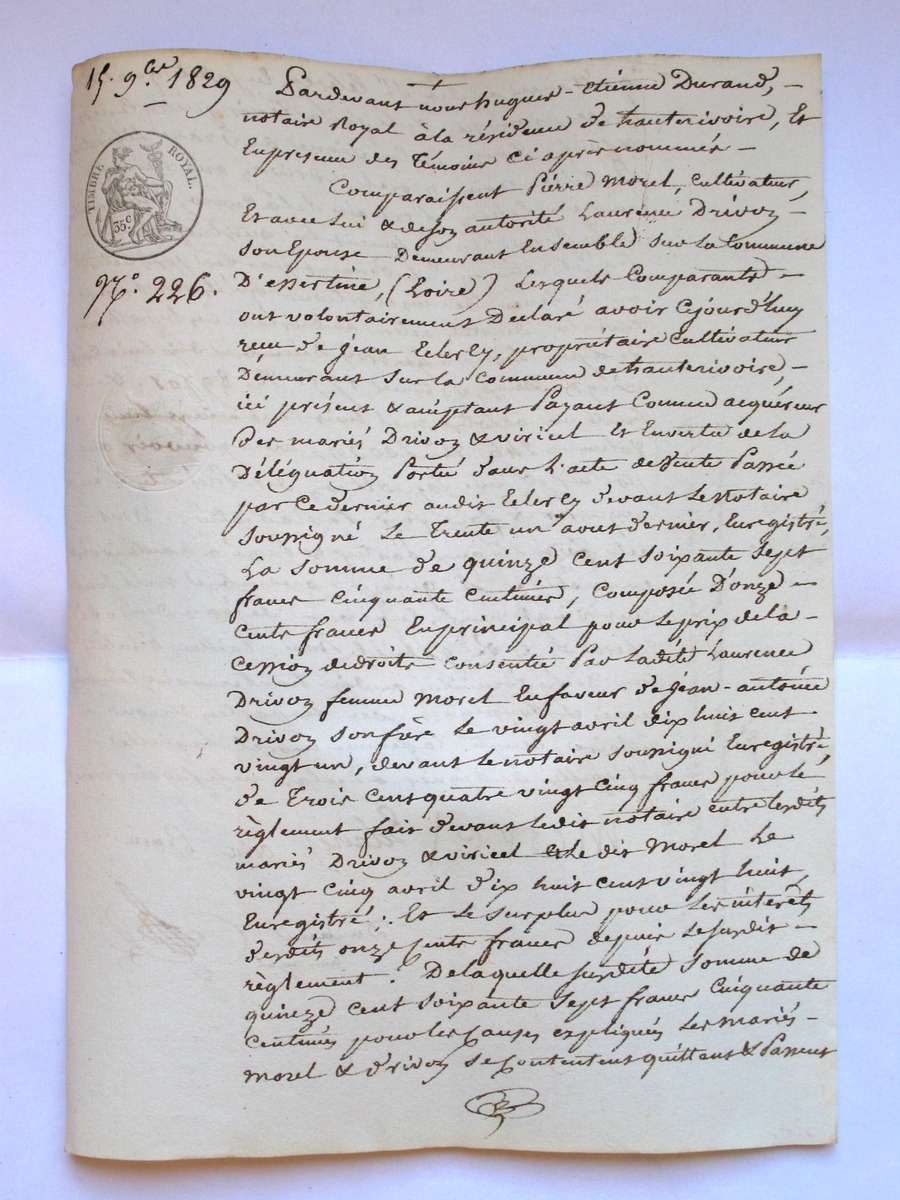 15. 9.bre 1829
TIMBRE ROYAL.
35 c
N.º 226.
Pardevant nous hugues-Etienne Durand, -
notaire Royal à la résidence de hauterivoire, Et
En présence des Témoins ci après nommés -
Comparaissent Pierre Morel, Cultivateur,
Et avec Lui & de son autorité Laurence Drivon -
son Epouse Demeurant Ensemble sur la Commune
D'essertine, (Loire) Lesquels Comparants -
ont volontairement Déclaré avoir Cejourd'huy
reçu de jean Eclercy, propriétaire Cultivateur
Demeurant sur la Commune de hauterivoire, -
ici présent & acceptant Payant Comme acquéreur
des mariés Drivon & viricel Et En vertu de la
Déléguation Portée dans L'acte de vente Passée
par Ce dernier audit Eclercy devant Le Notaire
soussigné Le Trente un aout dernier, Enregistré,
La somme de quinze cent soixante sept
francs cinquante centimes, Composée D'onze -
cents francs En principal pour le prix de la -
cession de droits consentie Par Ladite Laurence
Drivon femme Morel En faveur de jean-antoine
Drivon son frère Le vingt avril dix huit cent
vingt un, devant Le notaire soussigné Enregistré,
de Trois Cent quatre vingt Cinq francs pour le
règlement fait devant Ledit notaire entre Lesdits
mariés Drivon & viricel & Le dit Morel Le
vingt cinq avril dix huit cent vingt huit,
Enregistré; Et Le surplus pour Les intérêts
desdits onze cents francs depuis Le susdit -
règlement. De laquelle susdite somme de
quinze cent soixante sept francs Cinquante
Centimes pour les Causes expliquées Les mariés -
Morel & drivon se Contentent quittent & Passent